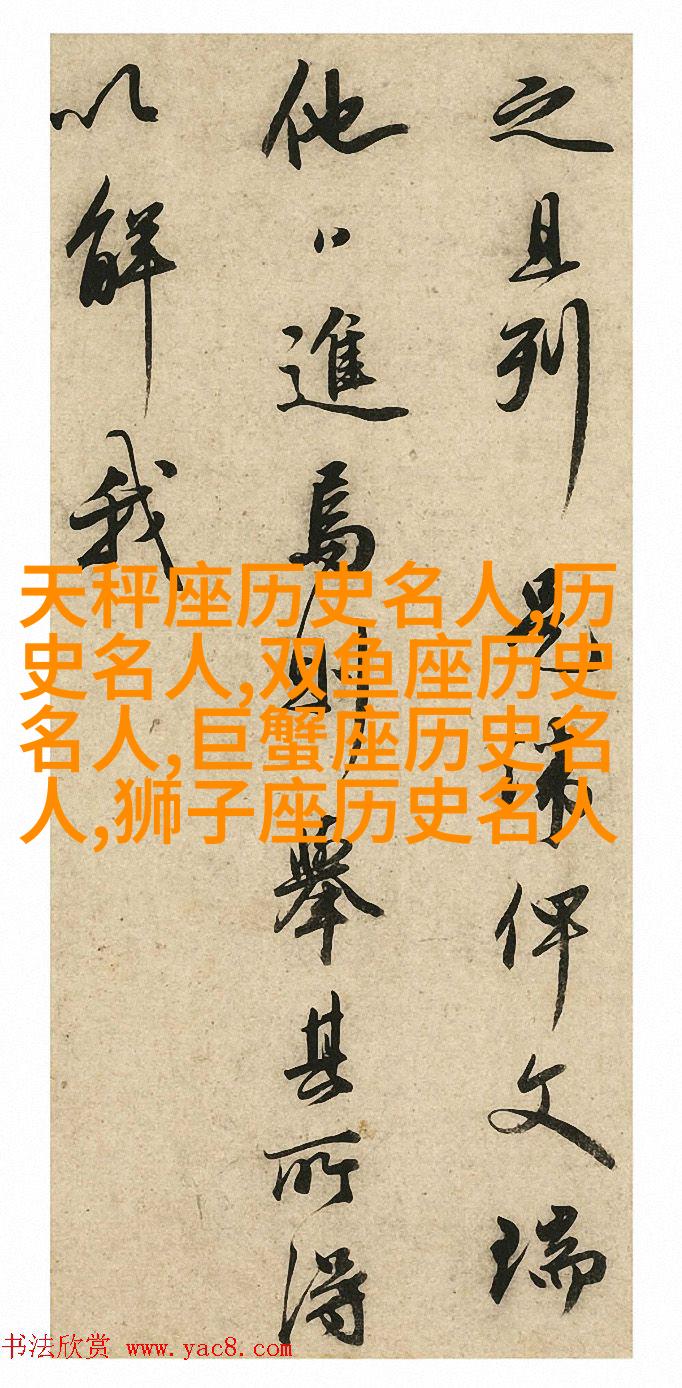 之且列
是瑞俾文瑞
他〻進
焉則舉其所得
以解我
天秤座历史名人,历
史名人,双鱼座历史
名人,巨蟹座历史名
人,狮子座历史名人
书法欣赏 www.yac8.com